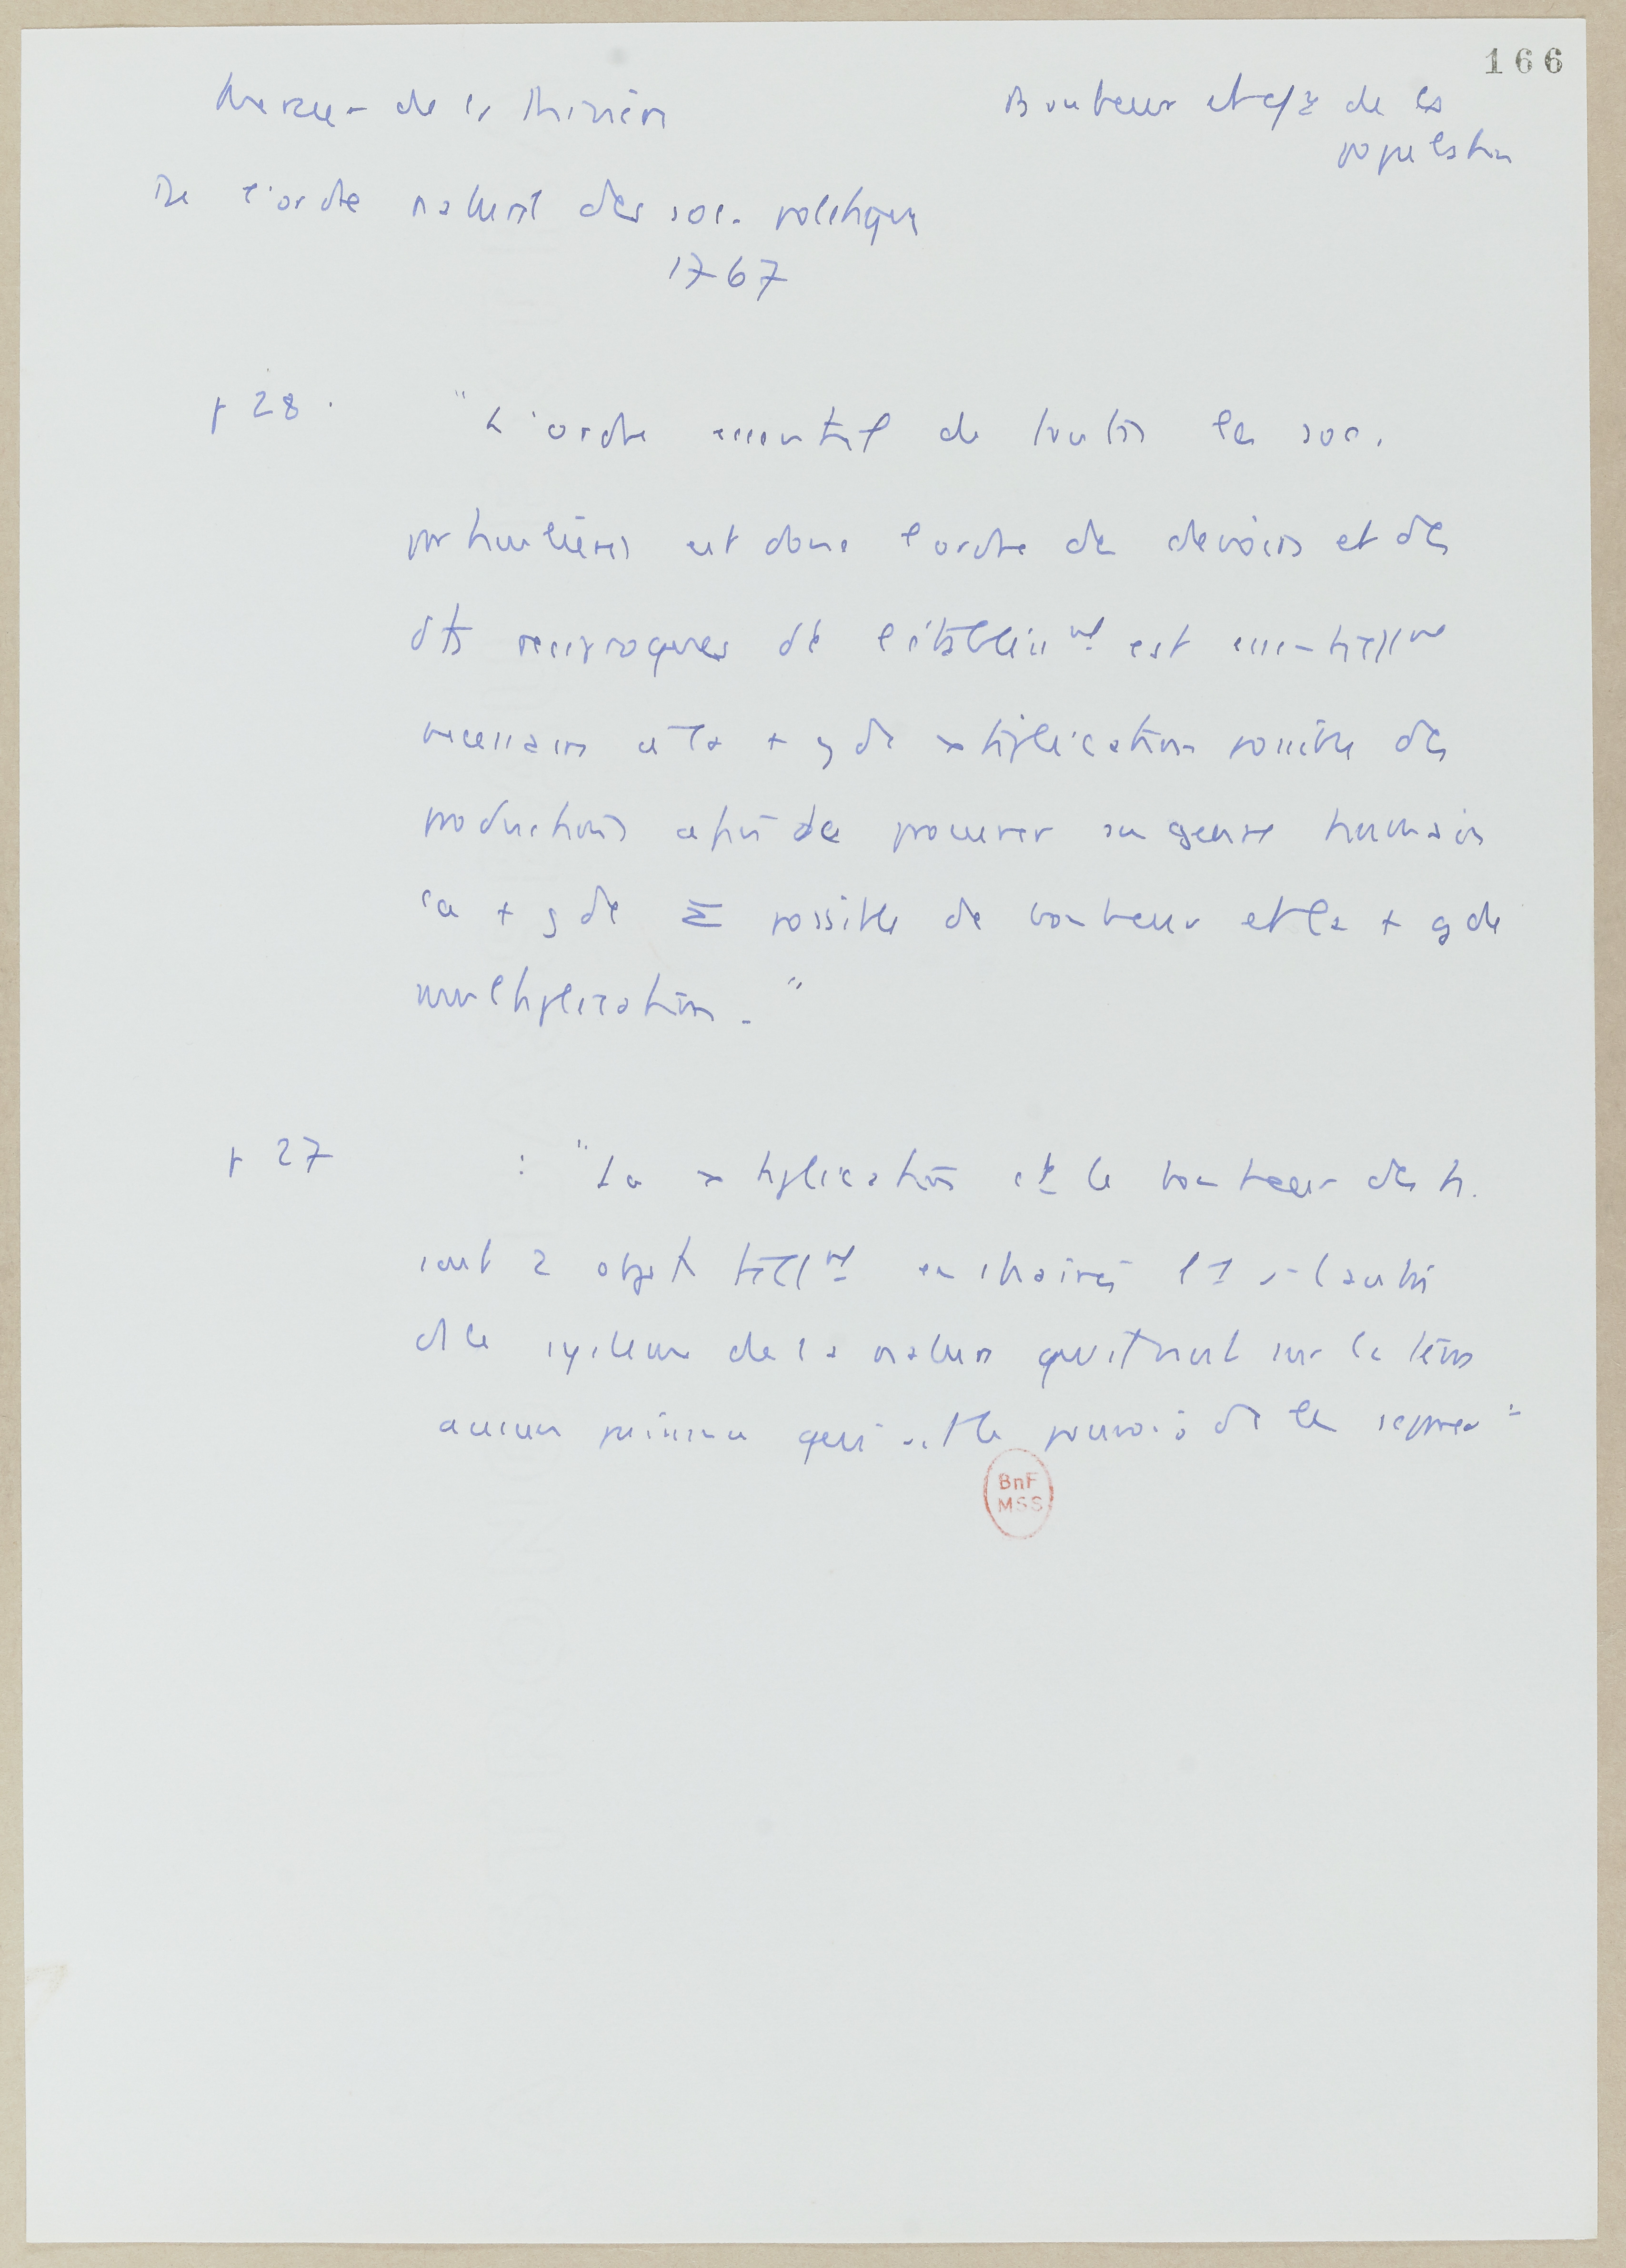 166
Mercier de la Rivière
Bonheur et de la
population
De l'ordre naturel des soc. politiques
1767
p 28.
"L'ordre essentiel de toutes les soc.
particulières est donc l'ordre des devoirs et des
dts reciproques dt l'établissmt est essentiellmt
necessaire à la + gde ×tiplication possible des
productions afin de procurer au genre humain
la + gde Σ possible de bonheur et la + gde
multiplication."
p 27
: "La ×tiplication et le bonheur des h.
sont 2 objets tellmt enchainés l'1 à l'autre
ds le système de la nature qu'il n'est sur la terre
aucune puissance qui ait le pouvoir de les séparer"
BnF
MSS